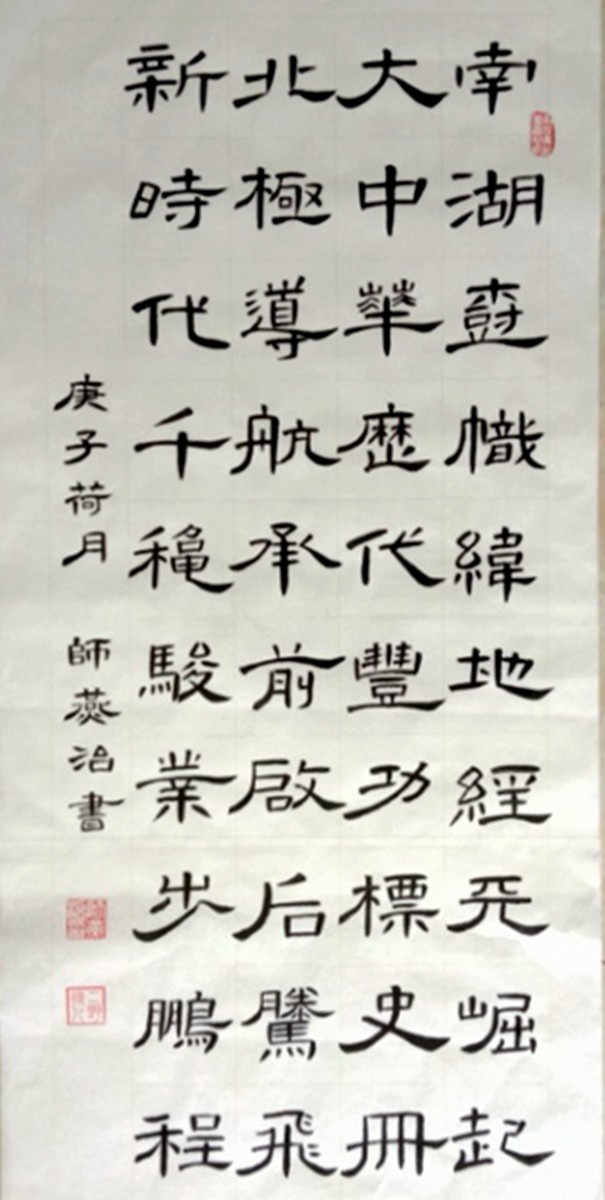 南湖尌幟緯地經天崛起
大中華歷代豐功標史冊
北極導航承前啟后騰飛
新時代千穐駿業步鵬程
庚子荷月 師燕治書